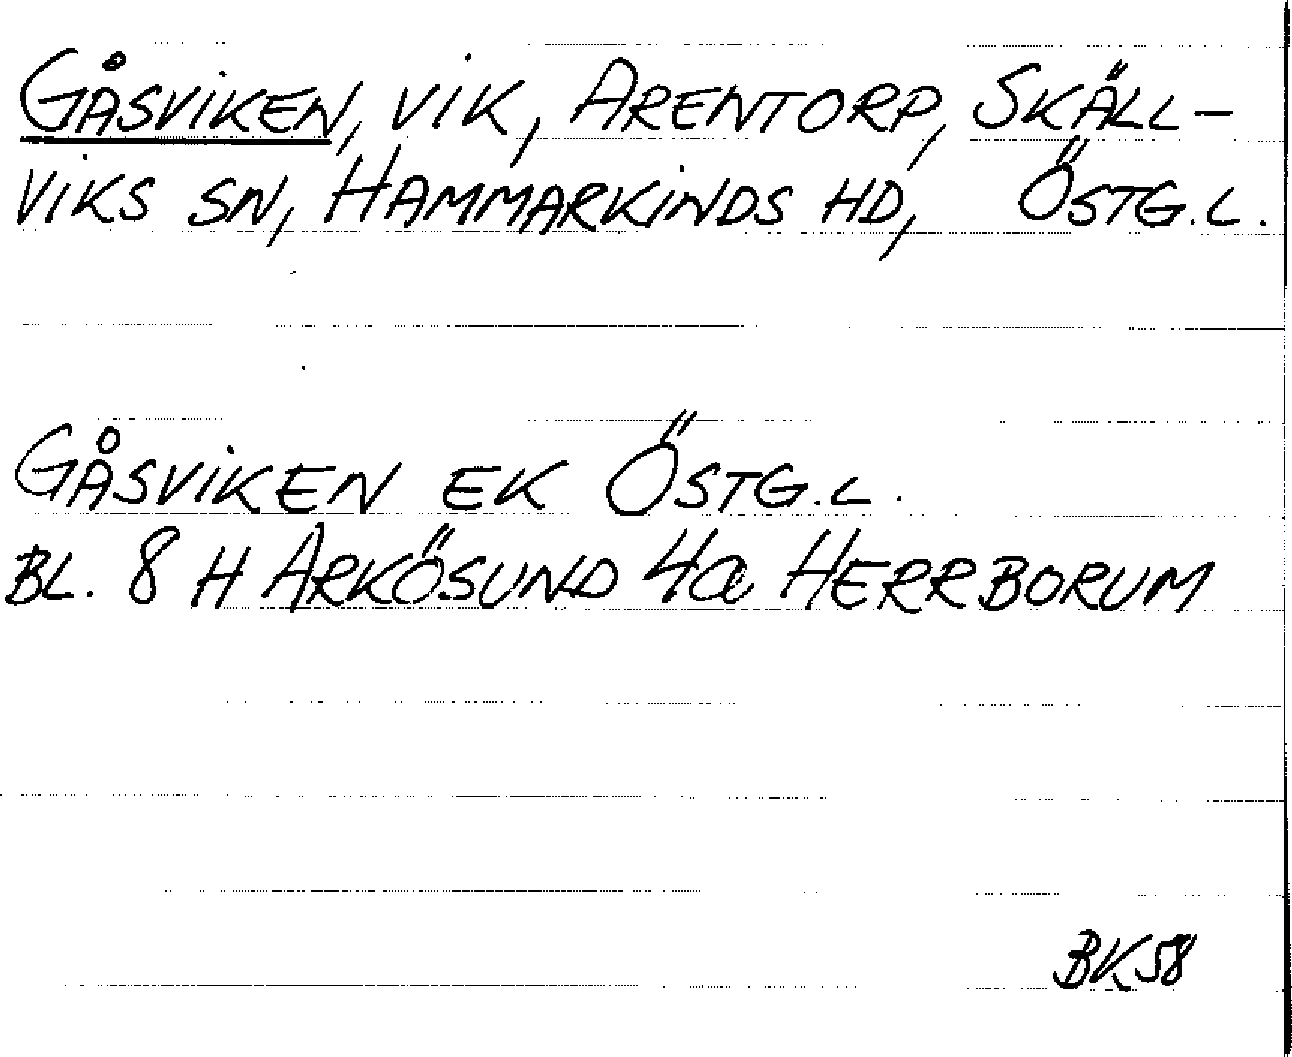 GÅSVIKEN, VIK, ARENTORP, SKÄLL-
VIKS SN, HAMMARKINDS HD, ÖSTG.L.
GÅSVIKEN EK ÖSTG.L.
BL. 8 H ARKÖSUND 4a HERRBORUM
BK58